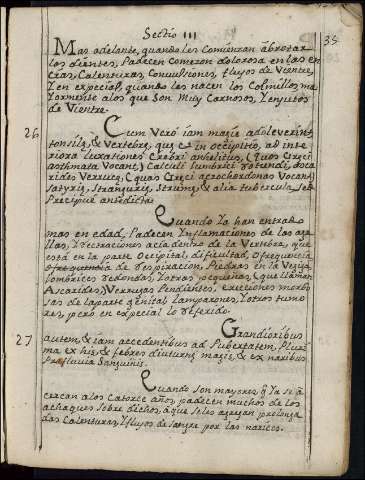 Sectio III
35
Mas adelante, quando les comienzan à brotar
los dientes, Padecen comezon dolorosa en las en
cias, Calenturas, Convulsiones, fluxos de Vientre,
Y en especial, quando les nacen los Colmillos, ma
Yormente a los que son Muy Carnosos, Y enjutos
de Vientre.
26
Cum Verò iam magis adoleverint,
tonsille, & Vertebre, que in occipitio, ad inte
riora luxationes Crebri anhelitus, (quos Greci
asthmata Vocant,) Calculi lumbrici rotundi, asca
rides Verruce, (quas Greci acrochordonas Vocant,
Satyris, Stranguris, Strume, & alia tubercula, Sed
Precipue antedicta.
Quando Ya han entrado
mas en edad, Padecen Ynflamaciones de las aga
llas, Y deviaciones acia dentro de la Vertebra, que
está en la parte Occipital, dificultad,
de Respiracion, Piedras en la Vexiga
lombrices Redondas, Y otras pequeñas, (que llaman
Ascarides,) Verrugas Pendientes, erecciones morbo
sas de la parte genital Lamparones, Y otros tumo
res, pero en especial lo referido.
27
Grandioribus
autem, & iam accedentibus ad Pubertatem, Pluri
ma ex his, & febres diuturne magis, & ex naribus
Profluvia Sanguinis.
Quando son mayores, q Ya se à
cercan a los Catorce años, padecen muchos de los
achaques sobre dichos, à que se les agregan prolonga
das Calenturas, Y fluxos de sangre por las narices.